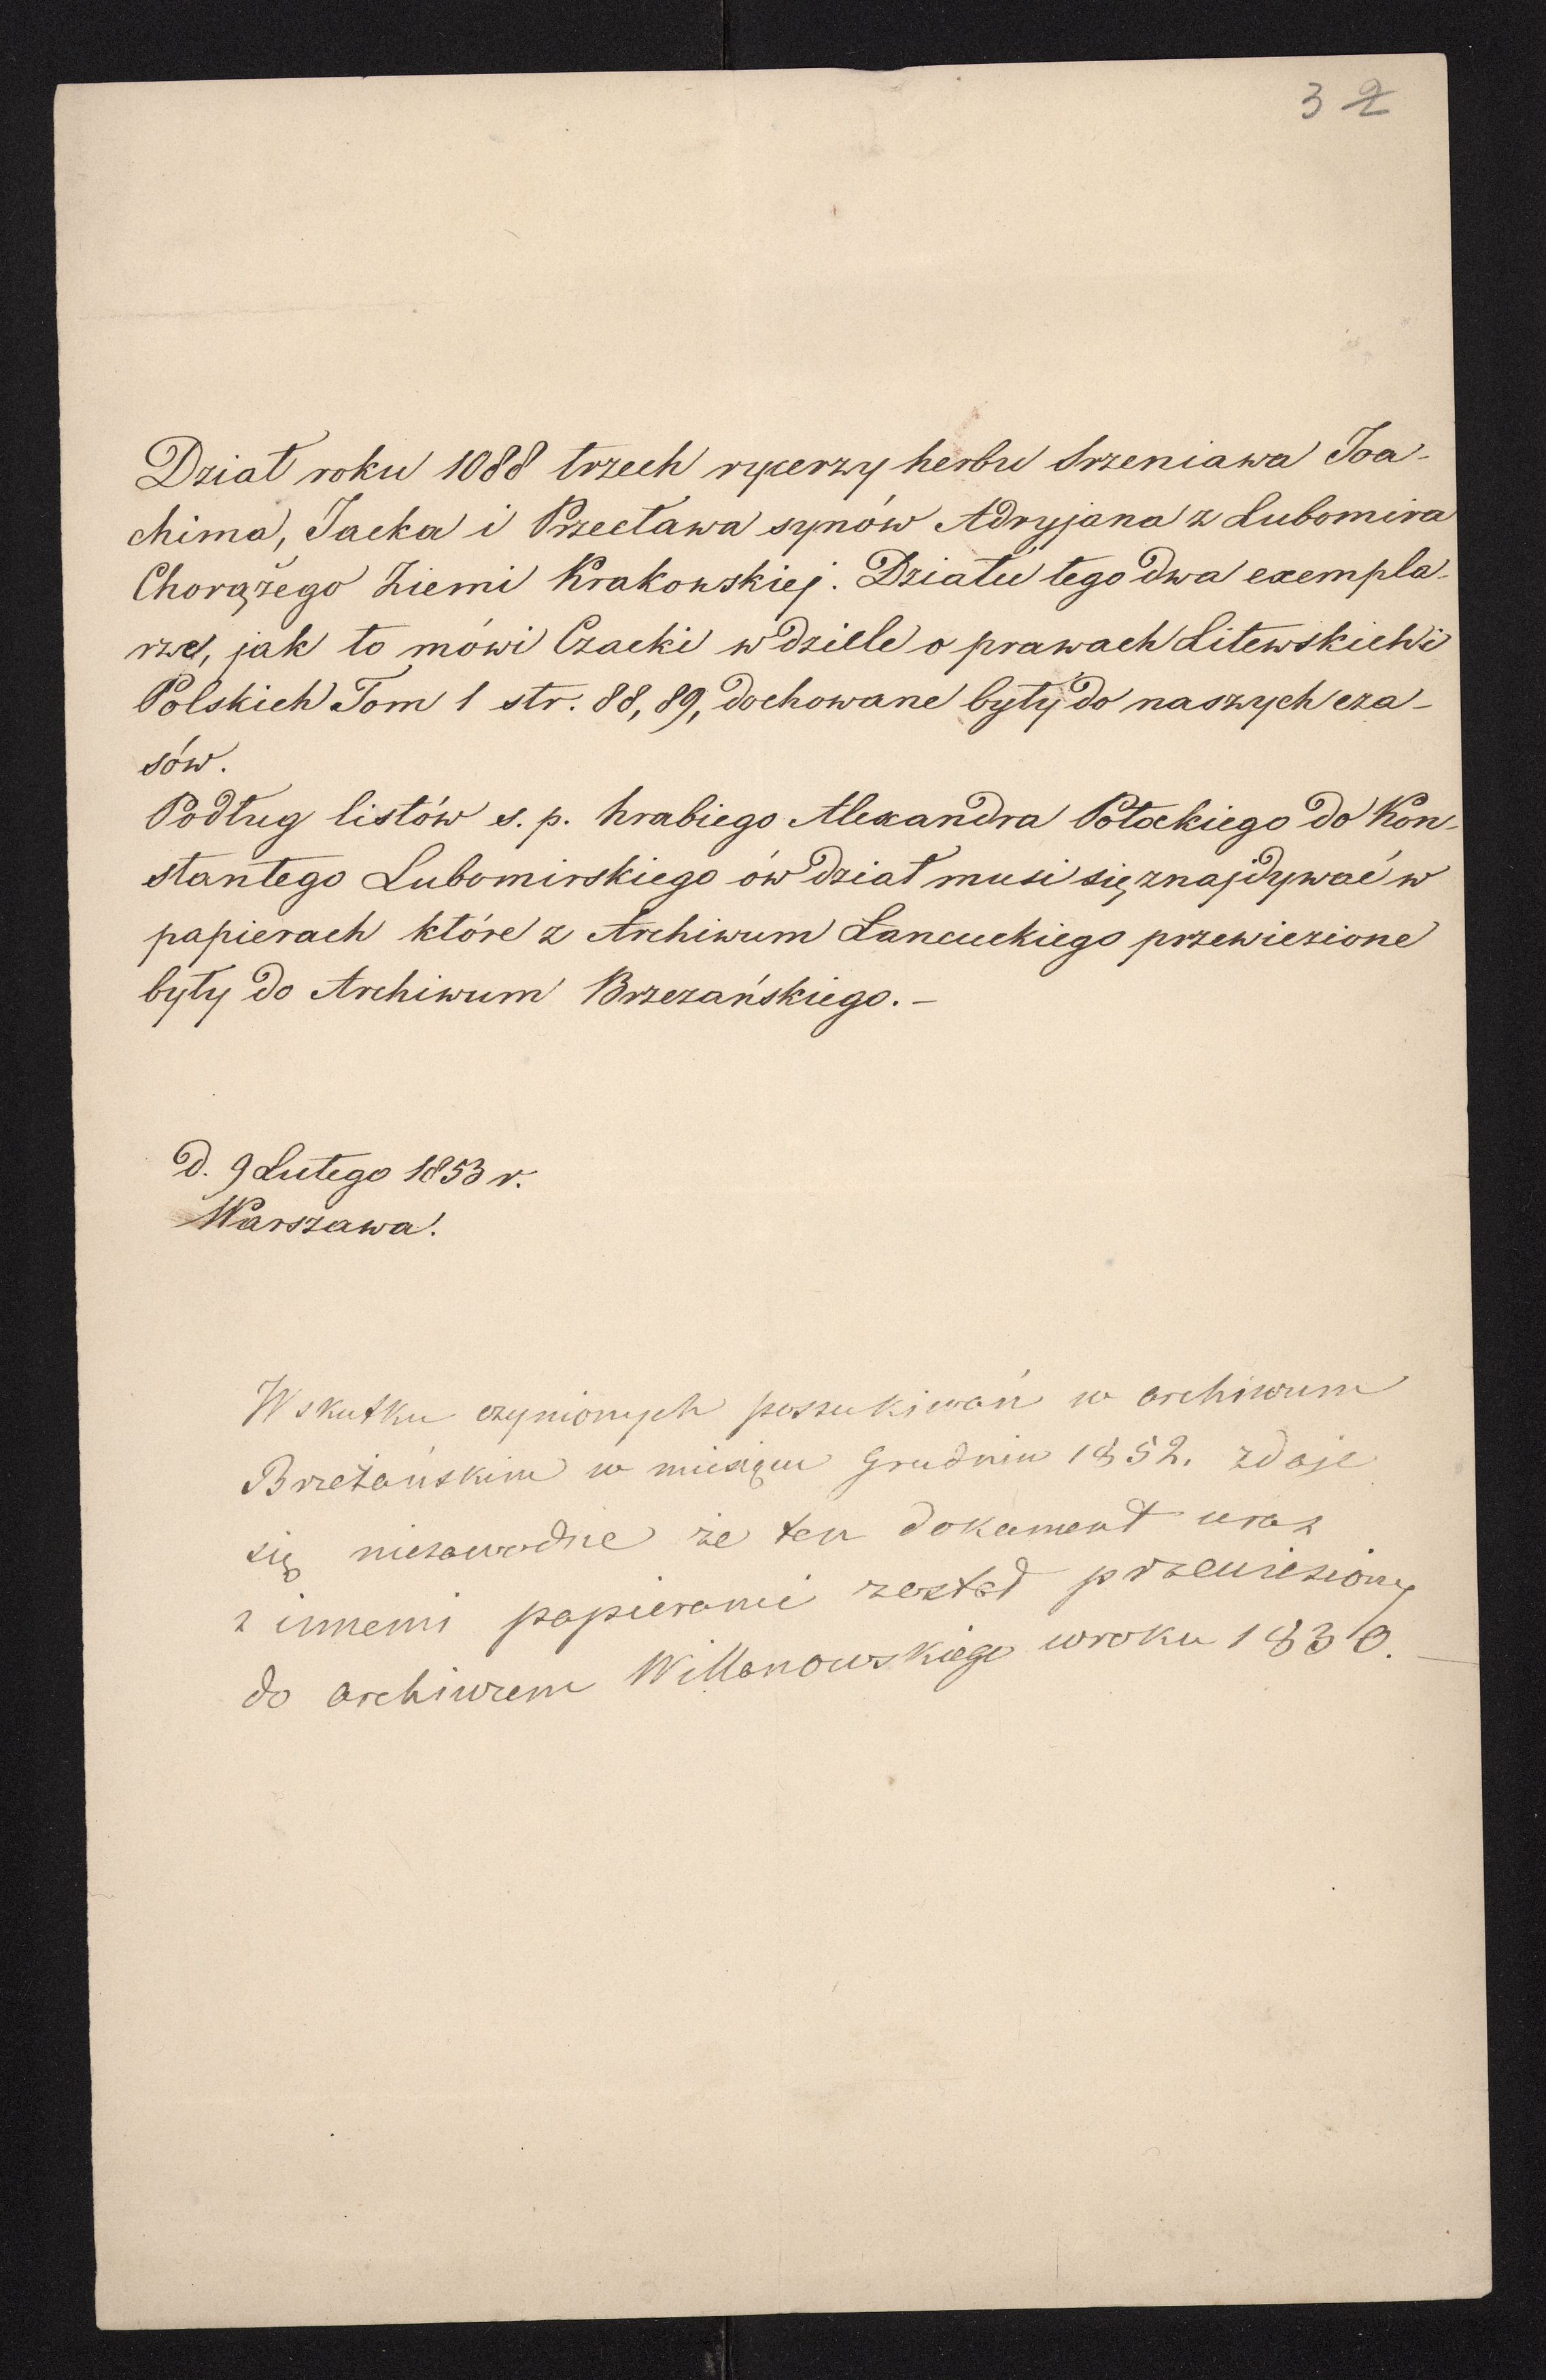 3 2
Dział roku 1088 trzech rycerzy herbu Srzeniawa Joa-
chima, Jacka i Przecława synów Adryjana z Lubomira
Chorążego Ziemi Krakowskiej. Działu tego dwa exempla-
rze, jak to mówi Czacki w dziele o prawach Litewskich i
Polskich Tom 1 str. 88, 89, dochowane były do naszych cza-
sów.
Podług listów s. p. hrabiego Alexandra Potockiego do Kon-
stantego Lubomirskiego ów dział musi się znajdywać w
papierach które z Archiwum Łancuckiego przewiezione
były do Archiwum Brzezańskiego. –
D. 9 Lutego 1853 r.
Warszawa.
W skutku czynionych poszukiwań w archiwum
Brzeżańskim w miesiącu Grudniu 1852. zdaje
się niezawodne że ten dokument wraz
z innemi papierami został przewieziony
do archiwum Willanowskiego w roku 1830. –